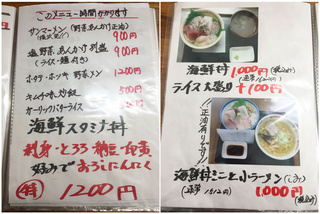 このメニュー時間かかります
サンマーメン(野菜あんかけ正油)
900円
塩野菜あんかけ
(ライス・麺付き)
900円
ホタテ・ホッキ 野菜メン 1200円
キムチ炒飯
500円
ガーリックバターライス
海鮮スタミナ丼
刺身・とろろ・納豆
好みで おろしにんにく
1200円
海鮮丼 1,000円(税込み)
ライス大盛り +100円
正油有ります
海鮮丼ミニと小ラーメン(しお)
1,000円
(税込み)